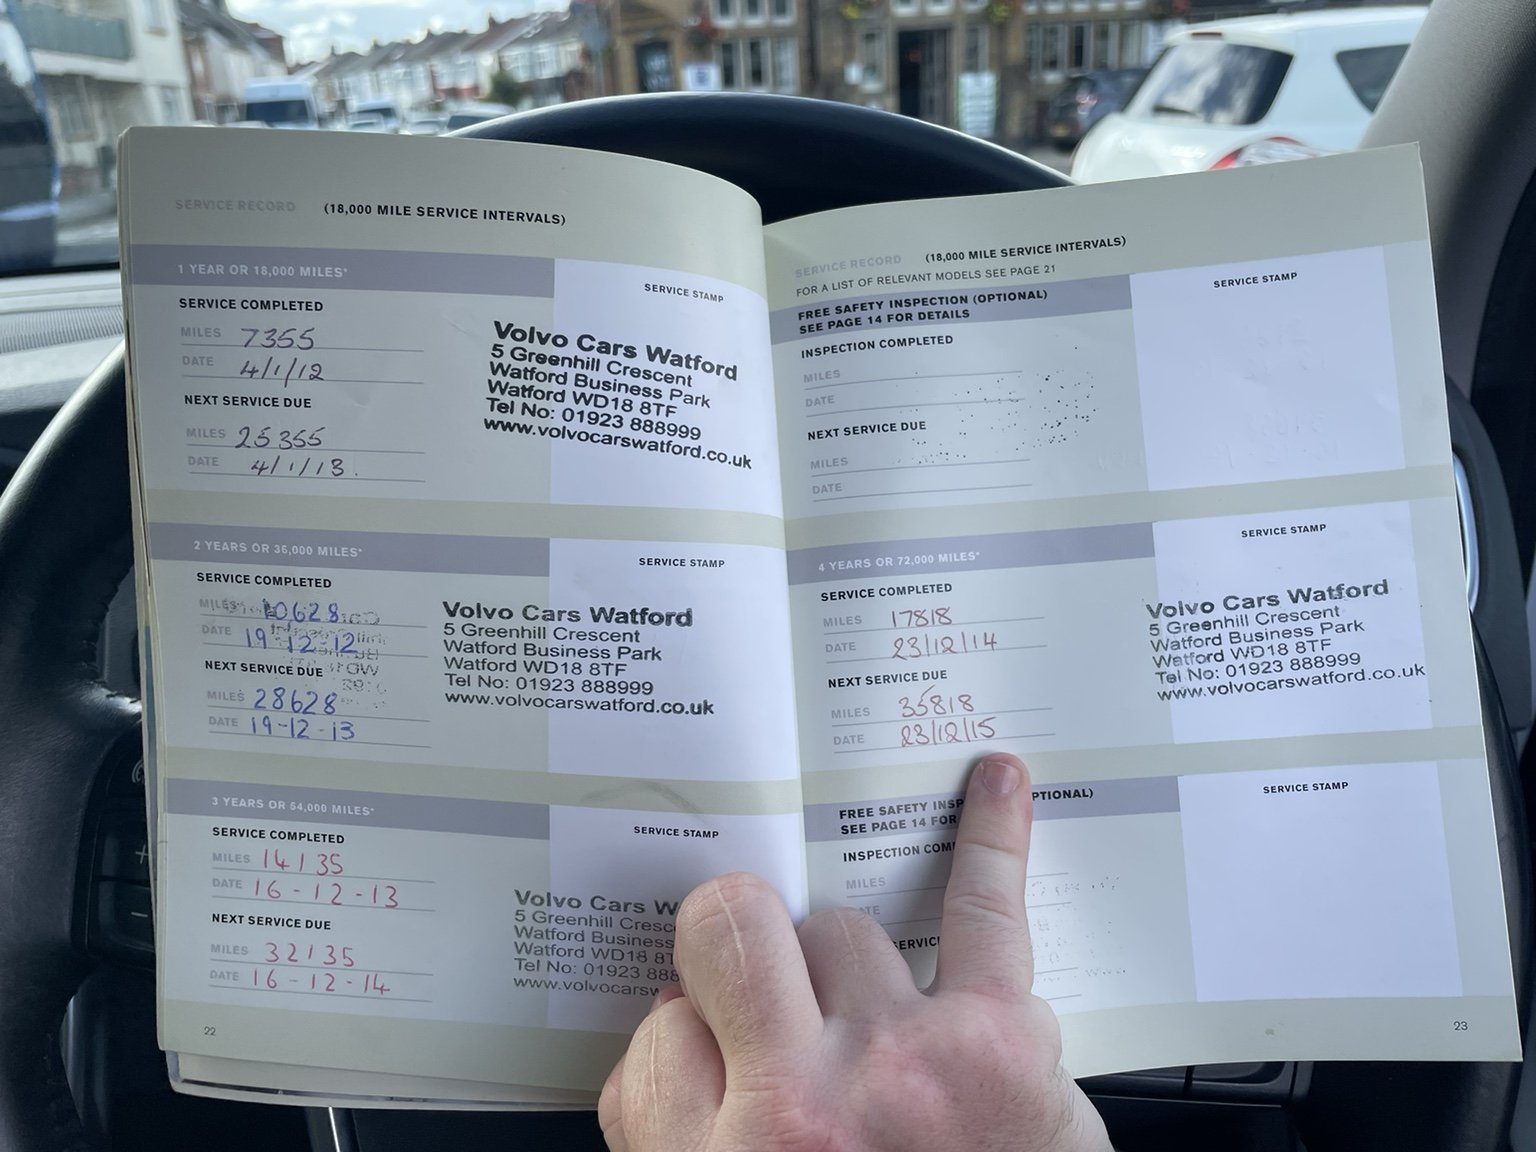 SERVICE RECORD (18,000 MILE SERVICE INTERVALS)
1 YEAR OR 18,000 MILES*
SERVICE STAMP
SERVICE COMPLETED
MILES 7355
DATE 4/1/12
NEXT SERVICE DUE
MILES 25355
DATE 4/1/13.
Volvo Cars Watford
5 Greenhill Crescent
Watford Business Park
Watford WD18 8TF
Tel No: 01923 888999
www.volvocarswatford.co.uk
2 YEARS OR 36,000 MILES*
SERVICE STAMP
SERVICE COMPLETED
MILES 10628
DATE 19-12-12
NEXT SERVICE DUE
MILES 28628
DATE 19-12-13
Volvo Cars Watford
5 Greenhill Crescent
Watford Business Park
Watford WD18 8TF
Tel No: 01923 888999
www.volvocarswatford.co.uk
3 YEARS OR 54,000 MILES*
SERVICE STAMP
SERVICE COMPLETED
MILES 14135
DATE 16-12-13
NEXT SERVICE DUE
MILES 32135
DATE 16-12-14
Volvo Cars W
5 Greenhill Cresc
Watford Business
Watford WD18 8T
Tel No: 01923 888
www.volvocarsw
22
SERVICE RECORD (18,000 MILE SERVICE INTERVALS)
FOR A LIST OF RELEVANT MODELS SEE PAGE 21
FREE SAFETY INSPECTION (OPTIONAL)
SEE PAGE 14 FOR DETAILS
SERVICE STAMP
INSPECTION COMPLETED
MILES
DATE
NEXT SERVICE DUE
MILES
DATE
4 YEARS OR 72,000 MILES*
SERVICE STAMP
SERVICE COMPLETED
MILES 17818
DATE 23/12/14
NEXT SERVICE DUE
MILES 35818
DATE 23/12/15
Volvo Cars Watford
5 Greenhill Crescent
Watford Business Park
Watford WD18 8TF
Tel No: 01923 888999
www.volvocarswatford.co.uk
FREE SAFETY INSP PTIONAL)
SEE PAGE 14 FOR
SERVICE STAMP
INSPECTION COM
MILES
ATE
SERVIC
23